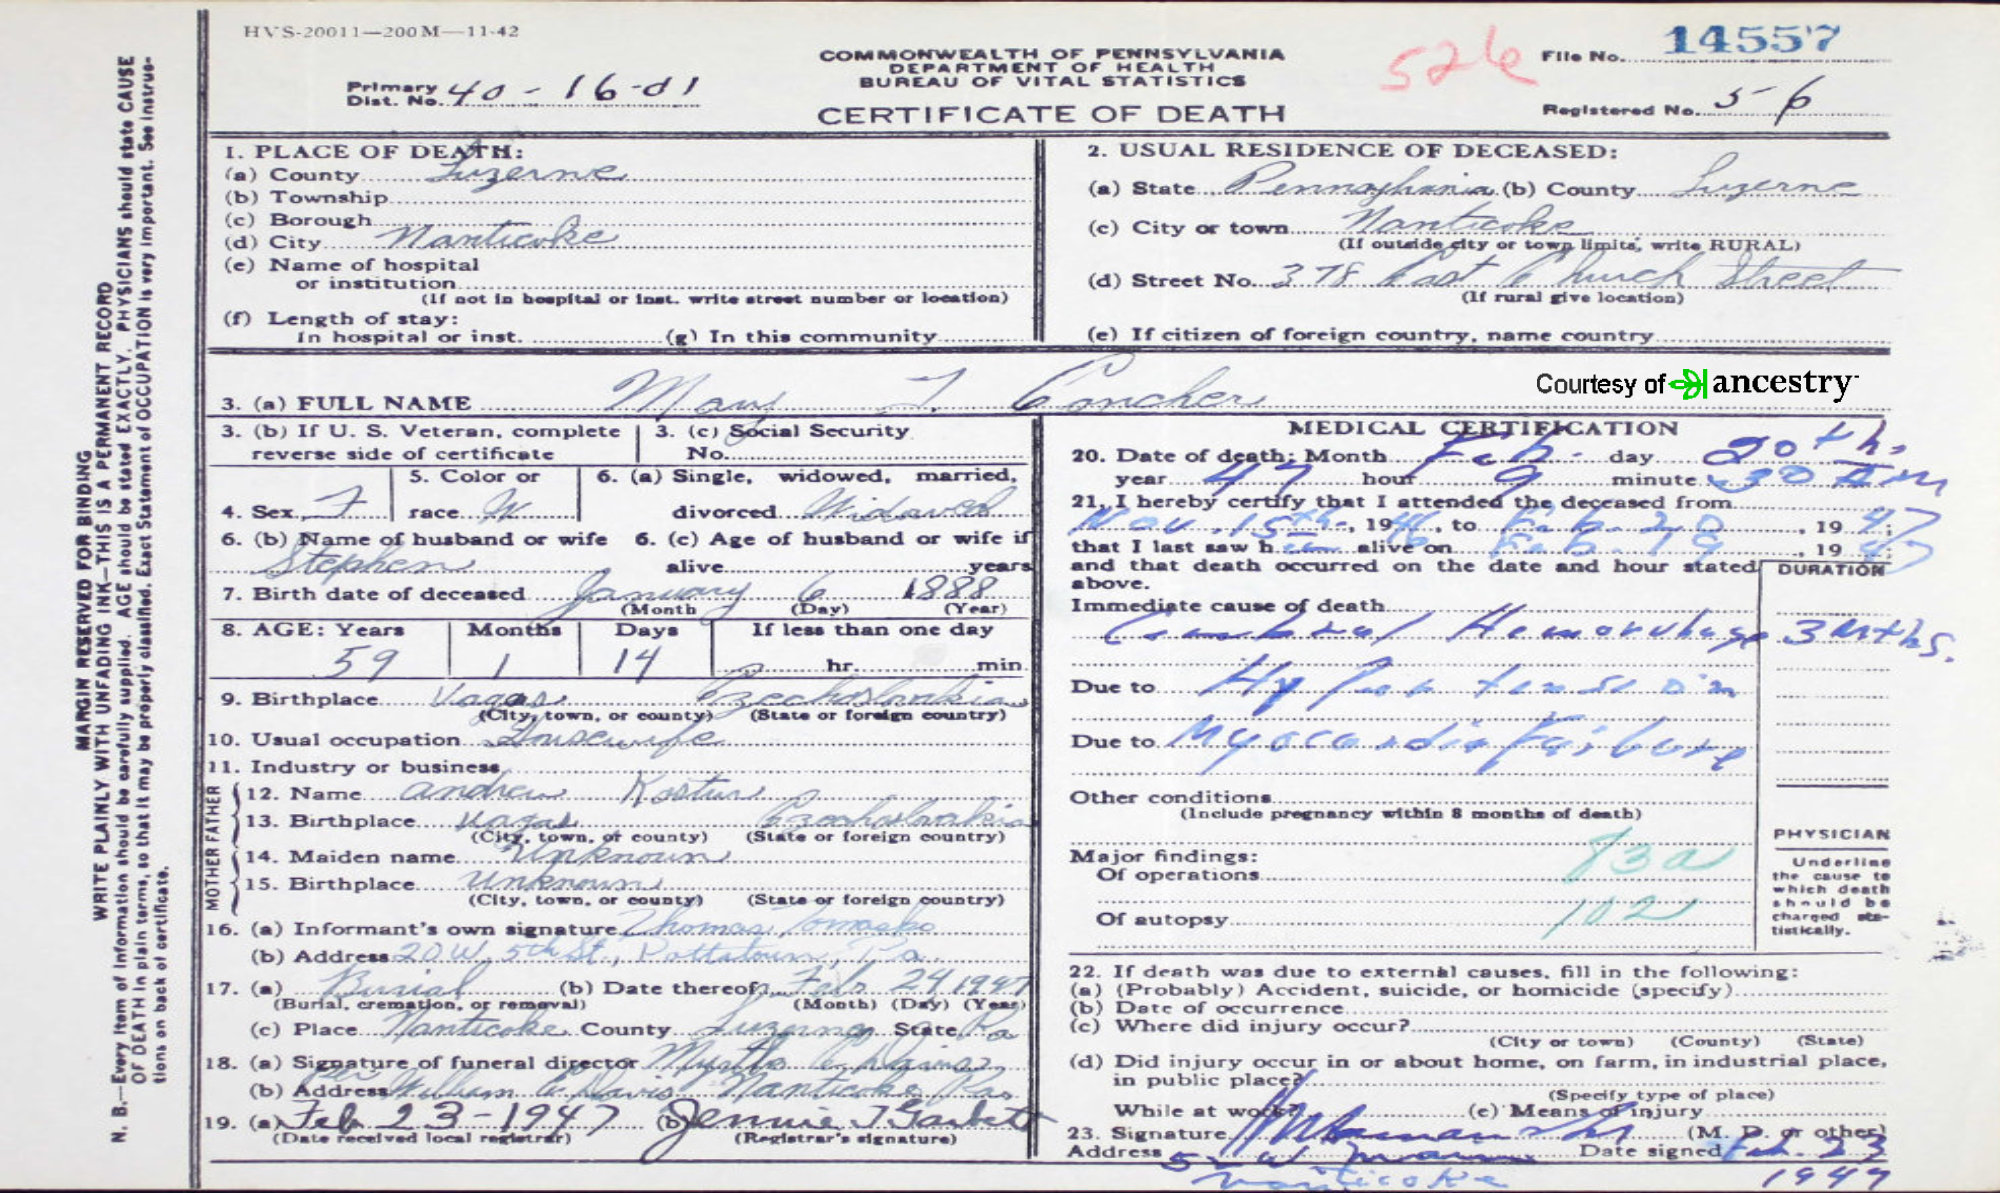 HVS-20011—200M—11-42
COMMONWEALTH OF PENNSYLVANIA
DEPARTMENT OF HEALTH
BUREAU OF VITAL STATISTICS
CERTIFICATE OF DEATH
Primary Dist. No. 40-16-01
526
File No. 14557
Registered No. 56
MARGIN RESERVED FOR BINDING
WRITE PLAINLY WITH UNFADING INK—THIS IS A PERMANENT RECORD
N. B.—Every item of information should be carefully supplied. AGE should be stated EXACTLY. PHYSICIANS should state CAUSE
OF DEATH in plain terms, so that it may be properly classified. Exact Statement of OCCUPATION is very important. See instruc-
tions on back of certificate.
1. PLACE OF DEATH:
(a) County Luzerne
(b) Township
(c) Borough
(d) City Nanticoke
(e) Name of hospital
or institution
(If not in hospital or inst. write street number or location)
(f) Length of stay:
In hospital or inst. (g) In this community
2. USUAL RESIDENCE OF DECEASED:
(a) State Pennsylvania (b) County Luzerne
(c) City or town Nanticoke
(If outside city or town limits, write RURAL)
(d) Street No. 378 East Church Street
(If rural give location)
(e) If citizen of foreign country, name country
3. (a) FULL NAME Mary T. Concher
Courtesy of ancestry
3. (b) If U. S. Veteran, complete
reverse side of certificate
3. (c) Social Security
No.
4. Sex F
5. Color or
race W
6. (a) Single, widowed, married,
divorced Widowed
6. (b) Name of husband or wife
Stephen
6. (c) Age of husband or wife if
alive years
7. Birth date of deceased January 6 1888
(Month (Day) (Year)
8. AGE: Years Months Days If less than one day
59 1 14 hr. min.
9. Birthplace Vagas Czechoslovakia
(City, town, or county) (State or foreign country)
10. Usual occupation Housewife
11. Industry or business
FATHER
12. Name Andrew Kostur
13. Birthplace Vagas Czechoslovakia
(City, town, or county) (State or foreign country)
MOTHER
14. Maiden name Unknown
15. Birthplace Unknown
(City, town, or county) (State or foreign country)
16. (a) Informant's own signature Thomas Tomasko
(b) Address 20 W. 5th St., Pottstown, Pa.
17. (a) Burial (b) Date thereof Feb 24 1947
(Burial, cremation, or removal) (Month) (Day) (Year)
(c) Place Nanticoke County Luzerne State Pa
18. (a) Signature of funeral director Myrtle E Davis
(b) Address William E Davis Nanticoke Pa
19. (a) Feb 23-1947 (b) Jennie T
(Date received local registrar) (Registrar's signature)
MEDICAL CERTIFICATION
20. Date of death: Month Feb. day 20th.
year 47 hour 9 minute 30
21. I hereby certify that I attended the deceased from
Nov. 15th, 1946, to Feb. 20, 1947;
that I last saw h alive on Feb. 19, 1947;
and that death occurred on the date and hour stated
above.
DURATION
Immediate cause of death
Cerebral Hemorrhage 3 Mths.
Due to Hypertension
Due to Myocardia Failure
Other conditions
(Include pregnancy within 8 months of death)
Major findings:
Of operations 83a
Of autopsy 102
PHYSICIAN
Underline
the cause to
which death
should be
charged sta-
tistically.
22. If death was due to external causes, fill in the following:
(a) (Probably) Accident, suicide, or homicide (specify)
(b) Date of occurrence
(c) Where did injury occur?
(City or town) (County) (State)
(d) Did injury occur in or about home, on farm, in industrial place,
in public place?
(Specify type of place)
While at work? (e) Means of injury
23. Signature (M. D. or other)
Address W Main Date signed Feb. 23
Nanticoke 1947